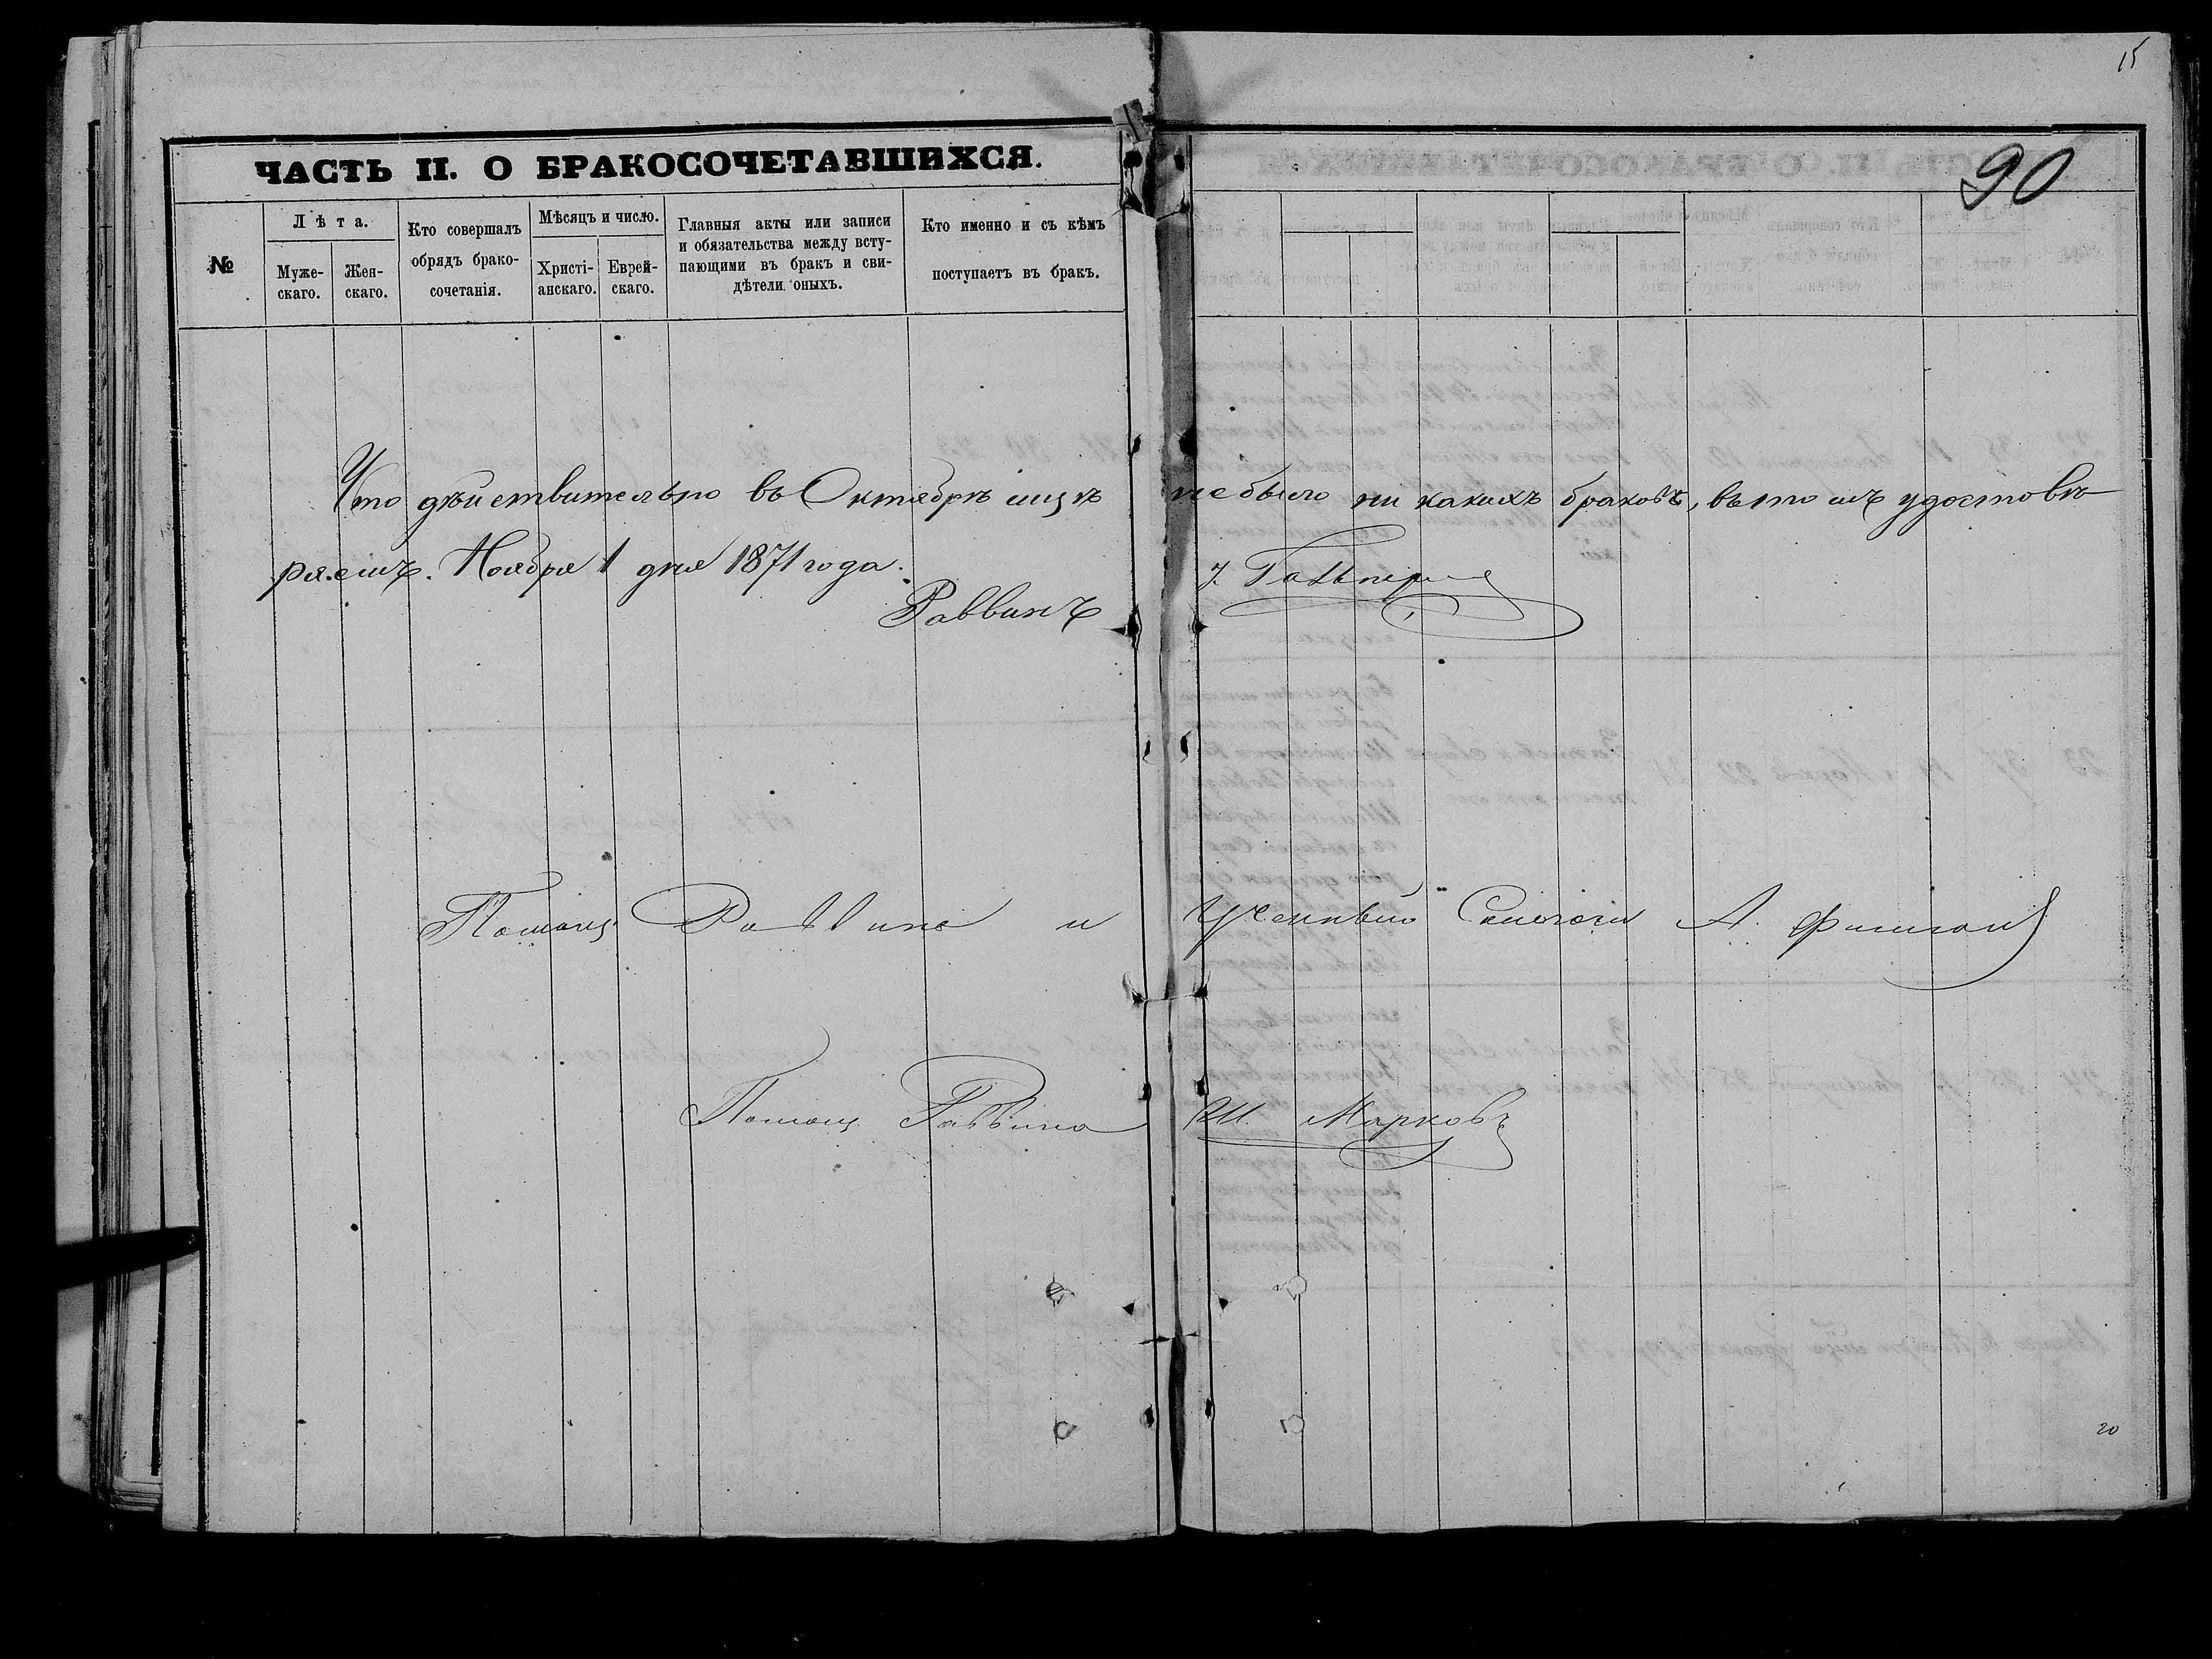 15
90
ЧАСТЬ II. О БРАКОСОЧЕТАВШИХСЯ.
№
Лѣта.
Муже-
скаго.
Жен-
скаго.
Кто совершалъ
обрядъ брако-
сочетанія.
Мѣсяцъ и число.
Христі-
анскаго.
Еврей-
скаго.
Главныя акты или записи
и обязательства между всту-
пающими въ бракъ и сви-
дѣтели оныхъ.
Кто именно и съ кѣмъ
поступаетъ въ бракъ.
Что дѣйствительно въ Октябрѣ мцѣ не было ни какихъ браковъ, въ томъ удостовѣ-
ряемъ. Ноября 1 дня 1871 года.
Раввинъ Гальперин
Помощ. Раввина и Ученный А.
Помощ. Раввина Ш. Марковъ
20